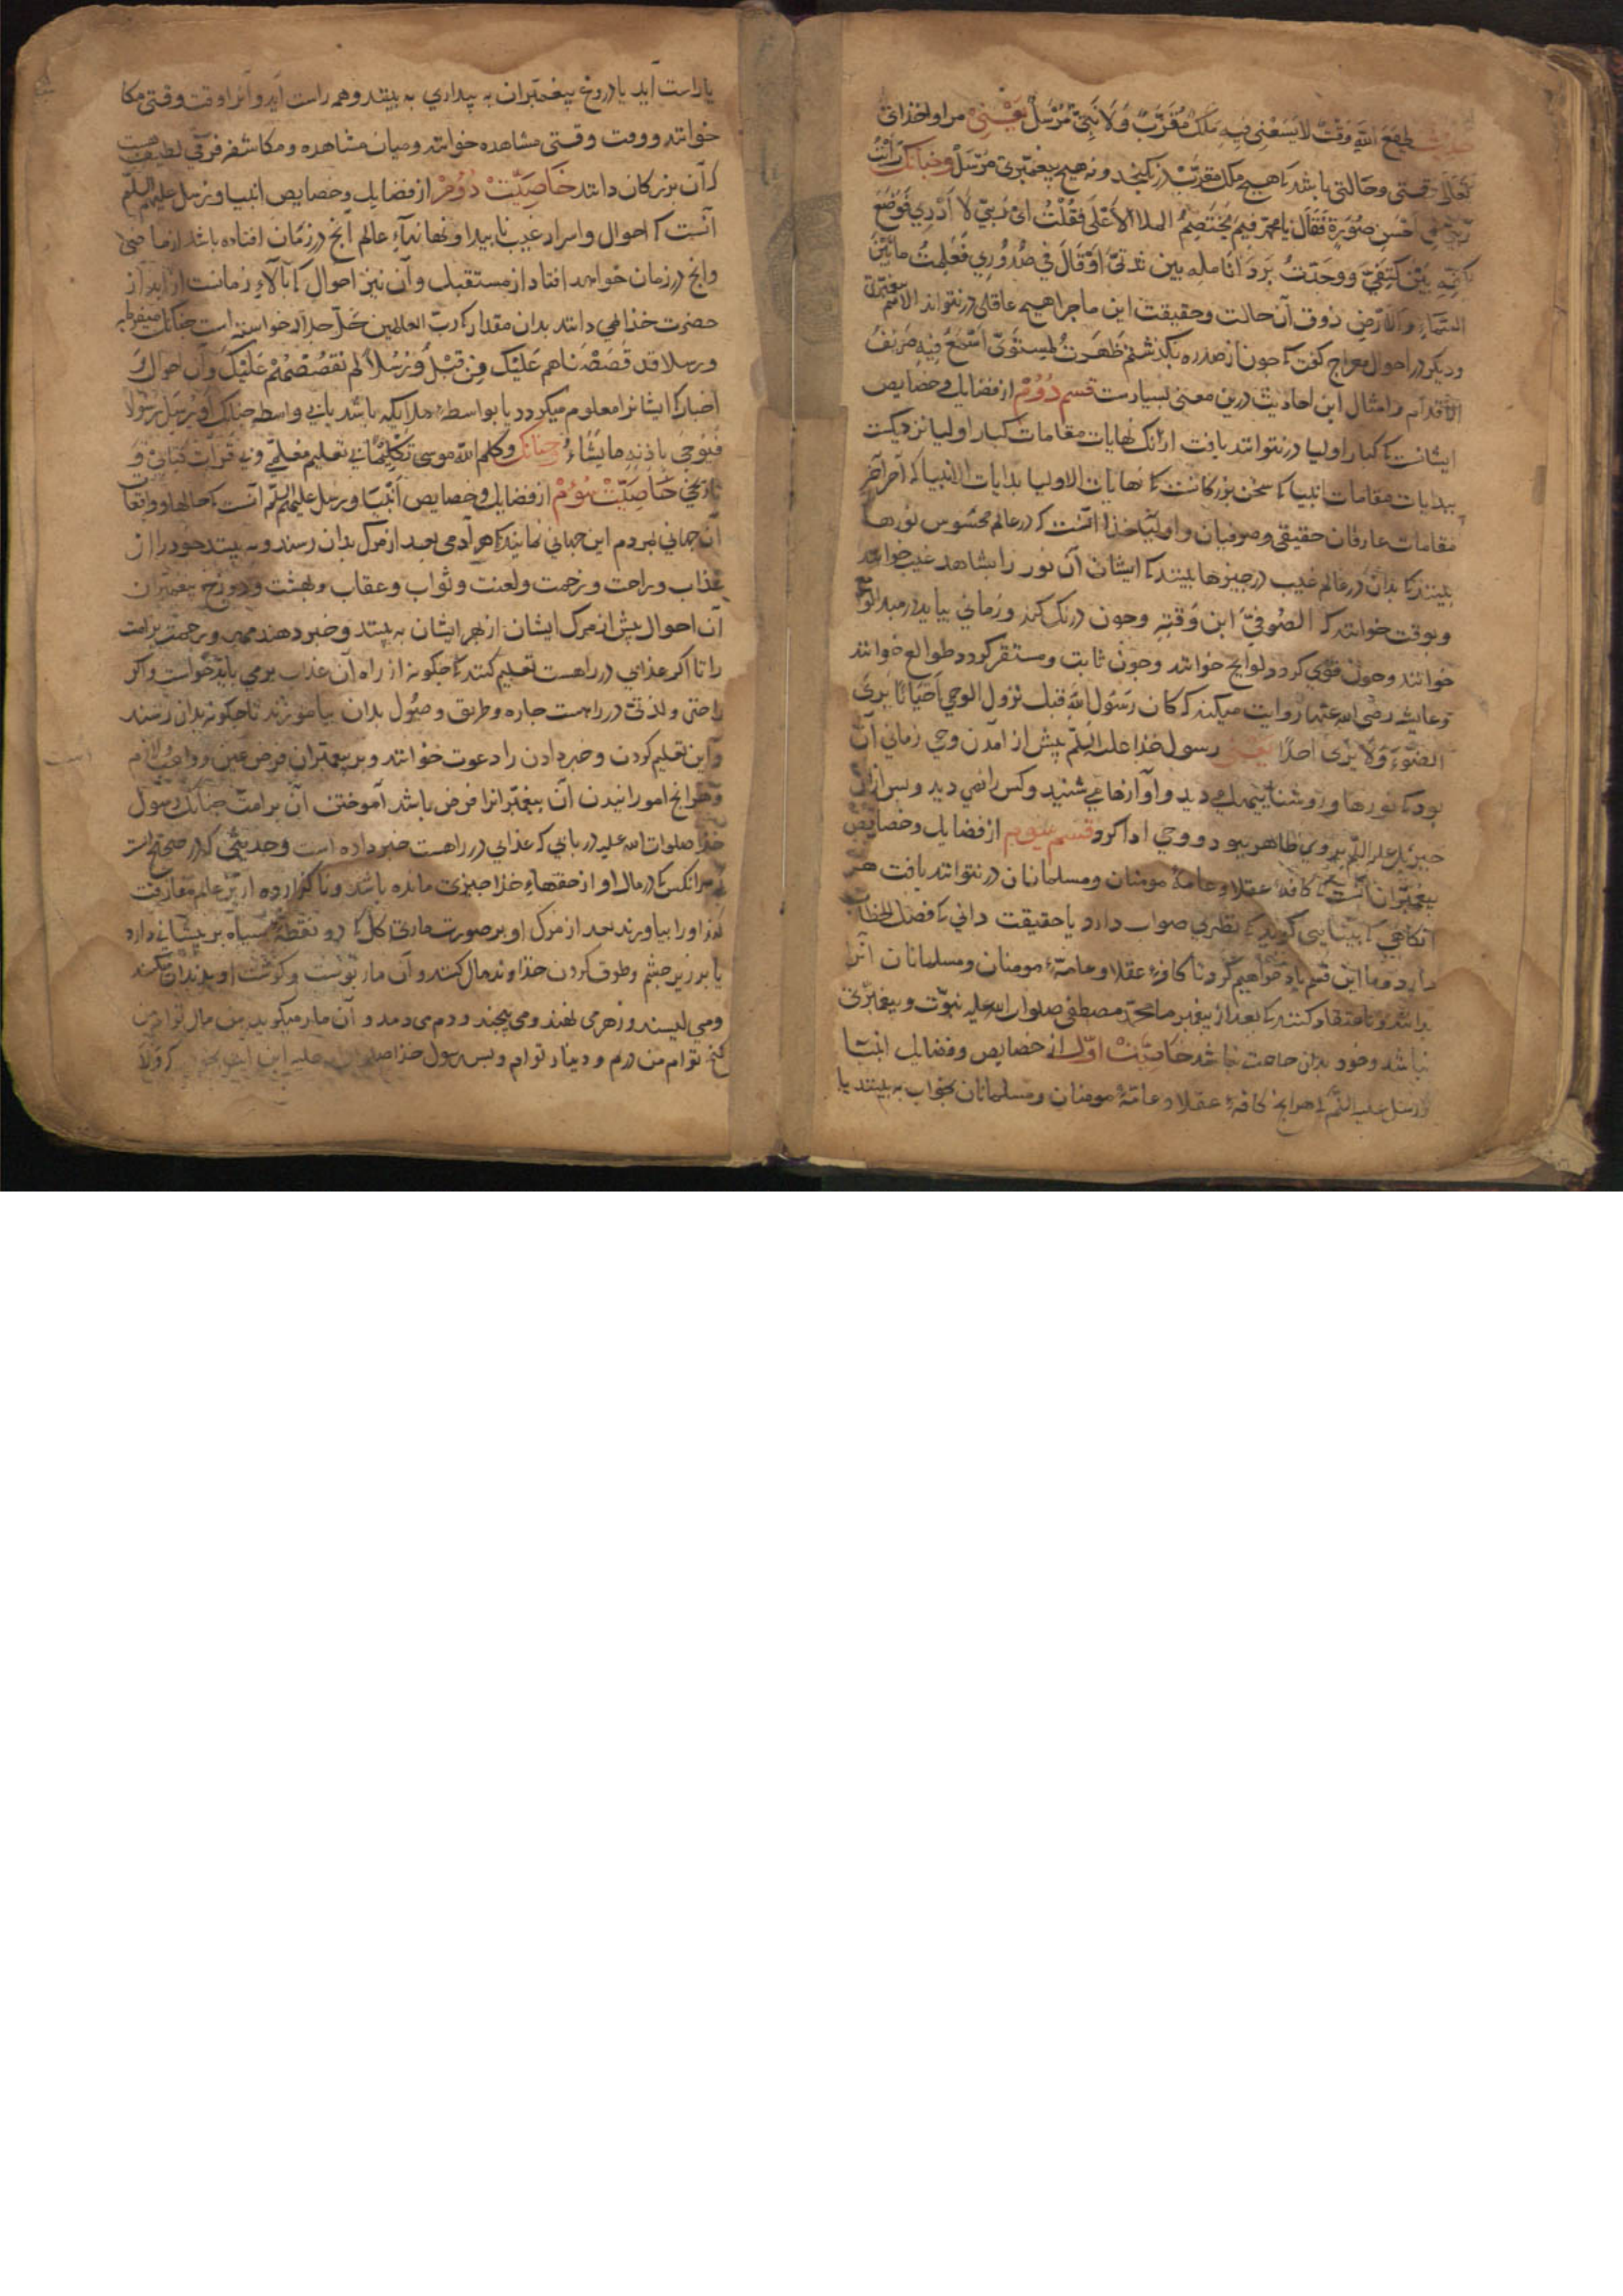 لی مع الله وقت لا یسعنی فیه ملک مقرب ولا نبی مرسل یعنی مرا و اخذائ
تعالی وقتی و حالتی باشد که هیچ ملک مقرب در نکنجد و نه هیچ پیغمبری مرسل و چنانک رایت
ربی فی احسن صورة فقال یا محمد فیم یختصم الملا الاعلی فقلت ای ربی لا ادری فوضع
کفه بین کتفی و وجدت برد انامله بین ثدیی او قال فی صدوری فعلمت ما بین
السماء والارض ذوق آن حالت و حقیقت این ماجرا هیچ عاقلی در نتواند الا
و دیکر در احوال معراج کفت که چون از صدره بکذشتم ظهرت لمستوی اسمع فیه صریف
الاقدام و امثال این احادیث درین معنی بسیارست قسم دوم از فضایل و خصایص
ایشانست که کبار اولیا در نتوانند یافت ازانک نهایات مقامات کبار اولیا نزدیکست
ببدایات مقامات انبیا که سخن بزرکانست که نهایات الاولیا بدایات الانبیا که آخر آخر
مقامات عارفان حقیقی و صوفیان و اولیاء خذا آنست که در عالم محسوس نورها
بینند که بدان در عالم غیب چیزها بینند که ایشان آن نور را بشاهد غیب خوانند
و بوقت خوانند که الصوفی ابن وقته و چون درنک کند و زمانی بیاید
خوانند و چون قوی کردد لوایح خوانند و چون ثابت و مستقر کردد طوالع خوانند
و عایشه رضی الله عنها روایت میکند که کان رسول الله قبل نزول الوحی احیانا یری
الضوء ولا یری احدا یعنی رسول خذا علیه السلم پیش از آمدن وحی زمانی آن
بود که نورها و روشناییها می دید و آوازها می شنید و کس را نمی دید و پس ازان
جبریل علیه السلم بروی ظاهر ببود و وحی ادا کرد قسم سوم از فضایل و خصایص
پیغمبران آنست که کافهٔ عقلا و عامهٔ مومنان و مسلمانان در نتوانند یافت هر
آنکاهی که بینایی کویند که نظری صواب دارد یا حقیقت دانی که فصل الخطاب
دارد و ما این قسم یاد خواهیم کرد تا کافهٔ عقلا و عامهٔ مومنان و مسلمانان آنرا
بدانند و اعتقاد کنند که بعد از پیغمبر ما محمد مصطفی صلوات الله علیه نبوت و پیغمبری
نباشد و خود بدان حاجت نباشد خاصیت اول از خصایص و فضایل انبیا
و رسل علیهم السلم که هرانچ کافهٔ عقلا و عامهٔ مومنان و مسلمانان بخواب به بینند یا
یا راست آید یا دروغ پیغمبران به بیداری به بینند و همه راست آید و آنرا وقت وقتی مکا
خوانند و وقت وقتی مشاهده خوانند و میان مشاهده و مکاشفه فرقی لطیف هست
که آن بزرکان دانند خاصیت دوم از فضایل و خصایص انبیا و رسل علیهم السلم
آنست که احوال و اسرار غیب ناپیدا و نهانیهاء عالم آنچ در زمان افتاده باشد از ماضی
وانچ در زمان خواهد افتاد از مستقبل و آن نیز احوال که بالاء زمانست از
حضرت خذا می دانند بدان مقدار که رب العالمین جل جلاله خواسته است چنانک میفرماید
ورسلا قد قصصناهم علیک من قبل ورسلا لم نقصصهم علیک و آن احوال و
اخبار که ایشانرا معلوم میکردد یا بواسطهٔ ملایکه باشد یا بی واسطه چنانک او یرسل رسولا
فیوحی باذنه ما یشاء و چنانک وکلم الله موسی تکلیما بی تعلیم معلمی و بی قرآت کتابی و
تاریخی خاصیت سوم از فضایل و خصایص انبیا و رسل علیهم السلم آنست که حالها و واقعات
آن جهانی مردم این جهانی نمایند که هر آدمی بعد از مرک بدان رسند و به بینند خود را از
عذاب و راحت و رحمت و لعنت و ثواب و عقاب و بهشت و دوزخ پیغمبران
آن احوال پیش از مرک ایشان از بهر ایشان به بینند و خبر دهند
را تا اکر عذابی در راهست تعلیم کنند که چکونه از راه آن عذاب برمی باید خواست و اکر
راحتی و لذتی در راهست چاره و طریق وصول بدان بیاموزند تا چکونه بدان رسند
و این تعلیم کردن و خبر دادن را دعوت خوانند و بر پیغمبران فرض عین و واجب لازم
و هرانچ امورانیدن آن پیغمبرانرا فرض باشد آموختن آن بر امت چنانک رسول
خذا صلوات الله علیه در بابی که عذابی در راهست خبر داده است و حدیثی که در صحیح است
که هرانکس که در مال او از حقهاء خذا چیزی مانده باشد و ناکزارده ازین عالم مفارقت
کند او را بیاورند بعد از مرک او بر صورت ماری کل که دو نقطهٔ سیاه بر پیشانی دارد
یا بر زیر چشم و طوق کردن خذاوند مال کنند و آن مار پوست و کوشت او بدندان میکند
و می لیسد و زهر می نهند و می پیچند و دم می دمد و آن مار میکوید من مال توام من
کنج توام من درم و دینار توام و پس رسول خذا صلوات الله علیه این آیت بخواند که ولا
است